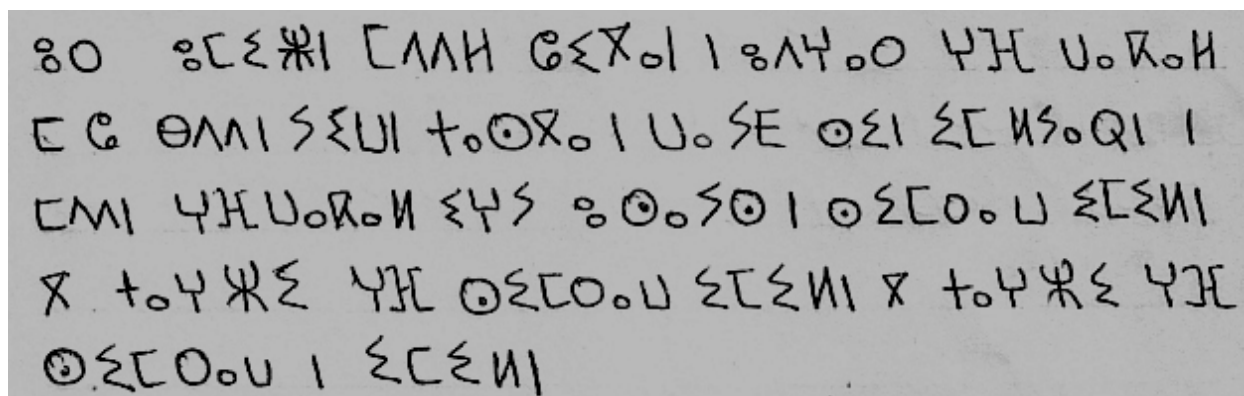 ⵓⵔ ⵓⵎⵉⵥⵏ ⵎⴷⴷⵍ ⵛⵉⴳⴰⵏ ⵏ ⵓⴷⵖⴰⵔ ⵖⴼ ⵡⴰⴽⴰⵍ
ⵎ ⵛ ⴱⴷⴷⵏ ⵢⵉⵡⵏ ⵜⴰⵙⴳⴰ ⵏ ⵡⴰⵢⴹ ⵙⵉⵏ ⵉⵎ ⵍⵢⴰⵕⵏ ⵏ
ⵎⴷⵏ ⵖⴼ ⵡⴰⴽⴰⵍ ⵉⵖⵢ ⵓⵙⴰⵢⵙ ⵏ ⵙⵉⵎⵔⴰⵡ ⵉⵎⵉⵍⵏ
ⴳ ⵜⴰⵖⵣⵉ ⵖⴼ ⵙⵉⵎⵔⴰⵡ ⵉⵎⵉⵍⵏ ⴳ ⵜⴰⵖⵣⵉ ⵖⴼ
ⵙⵉⵎⵔⴰⵡ ⵏ ⵉⵎⵉⵍⵏ